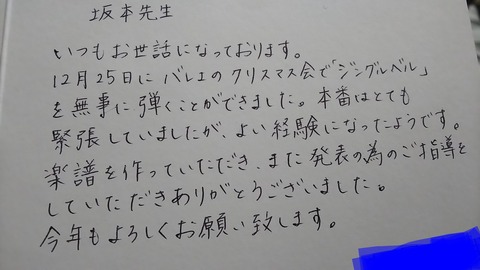 坂本先生
いつもお世話になっております。
12月25日にバレエのクリスマス会で「ジングルベル」
を無事に弾くことができました。本番はとても
緊張していましたが、よい経験になったようです。
楽譜を作っていただき、また発表の為のご指導を
していただきありがとうございました。
今年もよろしくお願い致します。